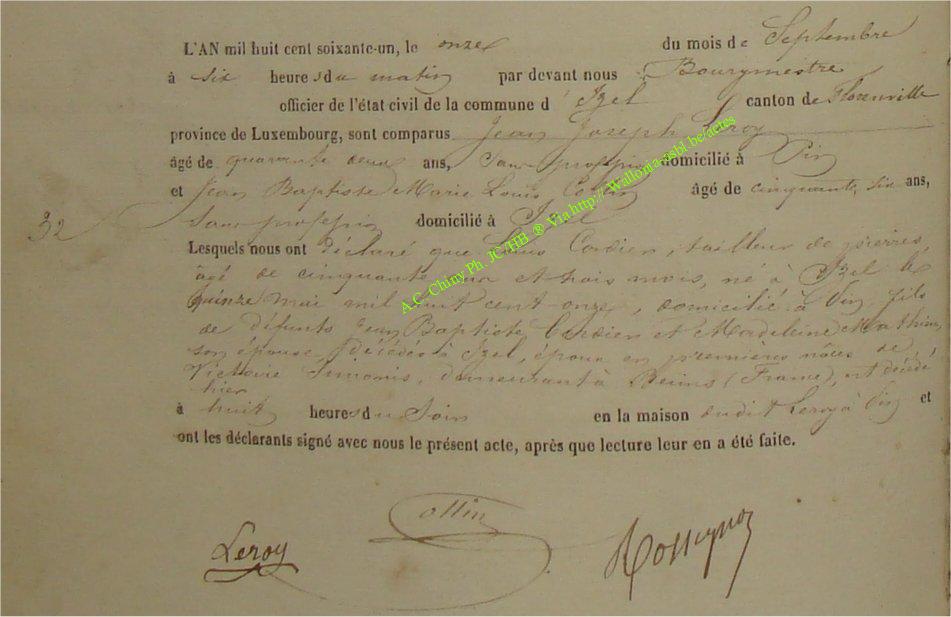 L'AN mil huit cent soixante-un, le onze du mois de Septembre
à six heures du matin par devant nous Bourgmestre
officier de l'état civil de la commune d'Izel canton de Florenville
province de Luxembourg, sont comparus Jean Joseph Leroy
âgé de quarante deux ans, Sans profession domicilié à Pin
et Jean Baptiste Marie Louis Collin âgé de cinquante six ans,
sans profession domicilié à Izel
32
Lesquels nous ont déclaré que Louis Cordier, tailleur de pierres
âgé de cinquante ans et trois mois, né à Izel le
quinze mai mil huit cent onze, domicilié à Pin, fils
de défunts Jean Baptiste Cordier et Madeleine Mathieu,
son épouse, décédés à Izel, époux en premières nôces de
Victoire Simonis, demeurant à Reims (France), est décédé
hier
à huit heures du Soir en la maison dudit Leroy à Pin et
ont les déclarants signé avec nous le présent acte, après que lecture leur en a été faite.
Leroy Collin Rossignon
A.C. Chiny Ph. JC/HB ® Via http://Wallonia.asbl.be/actes